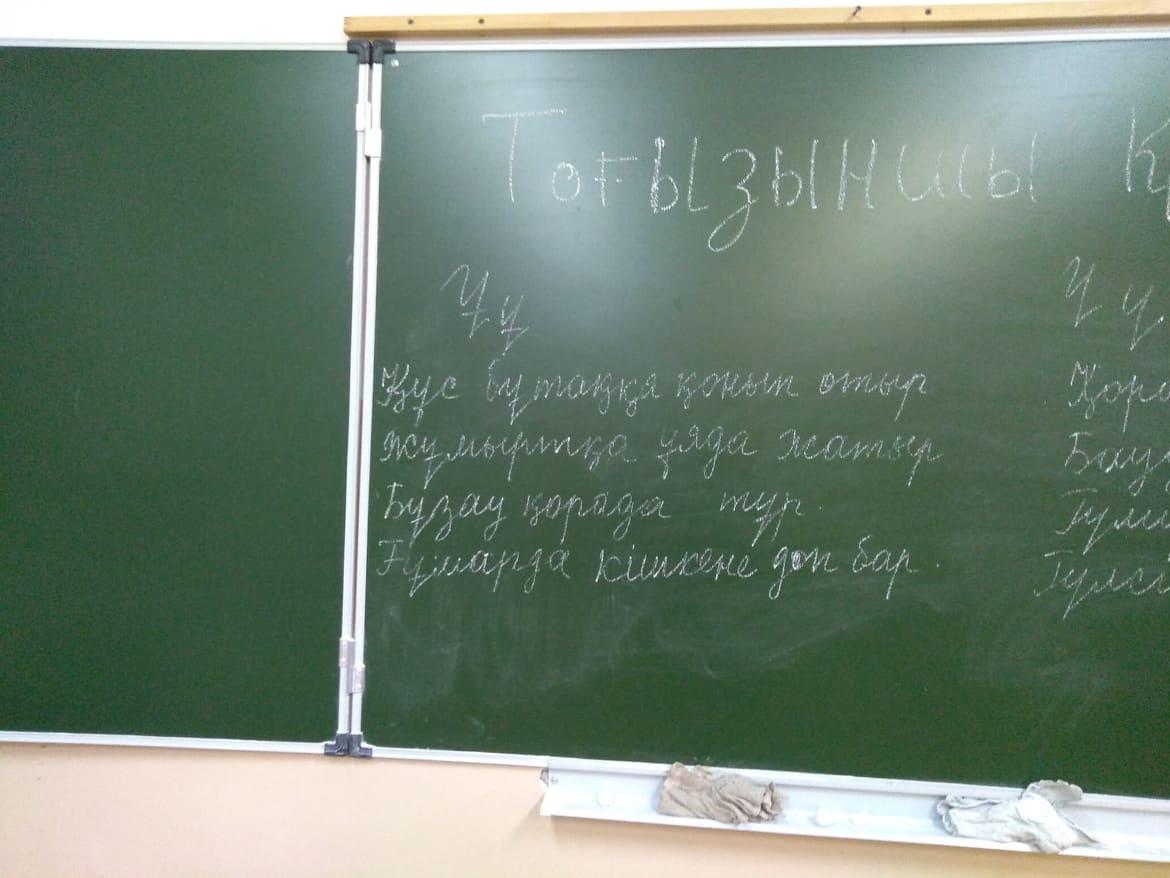 Тоғызыншы
Ұұ
Құс бұтаққа қонып отыр
Жұмыртқа ұяда жатыр
Бұзау қорада тұр.
Ғұмарда кішкене доп бар.